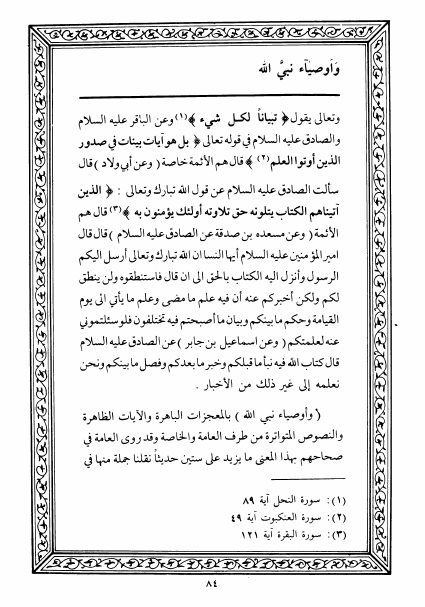 وَأوصيَآء نبيَّ الله
وتعالى يقول ﴿ تبياناً لكـل شيء ﴾(١) وعن الباقر عليه السلام
والصادق عليه السلام في قوله تعالى ﴿ بل هو آيات بينات في صدور
الذين أوتوا العلم(٢) ﴾ قال هم الأئمة خاصة ( وعن أبي ولاد ) قال
سألت الصادق عليه السلام عن قول الله تبارك وتعالى : ﴿ الذين
آتيناهم الكتاب يتلونه حق تلاوته أولئك يؤمنون به ﴾(٣) قال هم
الأئمة ( وعن مسعده بن صدقة عن الصادق عليه السلام ) قال قال
امير المؤمنين عليه السلام أيها النسا ان الله تبارك وتعالى أرسل اليكم
الرسول وأنزل اليه الكتاب بالحق الى ان قال فاستنطقوه ولن ينطق
لكم ولكن أخبركم عنه أن فيه علم ما مضى وعلم ما يأتي الى يوم
القيامة وحكم ما بينكم وبيان ما أصبحتم فيه تختلفون فلو سئلتموني
عنه لعلمتكم ( وعن اسماعيل بن جابر ) عن الصادق عليه السلام
قال كتاب الله فيه نبأ ما قبلكم وخبر ما بعدكم وفصل ما بينكم ونحن
نعلمه إلى غير ذلك من الأخبار .
( وأوصياء نبي الله ) بالمعجزات الباهرة والآيات الظاهرة
والنصوص المتواترة من طرف العامة والخاصة وقد روى العامة في
صحاحهم بهذا المعنى ما يزيد على ستين حديثاً نقلنا جملة منها في
(١): سورة النحل آية ٨٩
(٢): سورة العنكبوت آية ٤٩
(٣): سورة البقرة آية ١٢١
٨٤